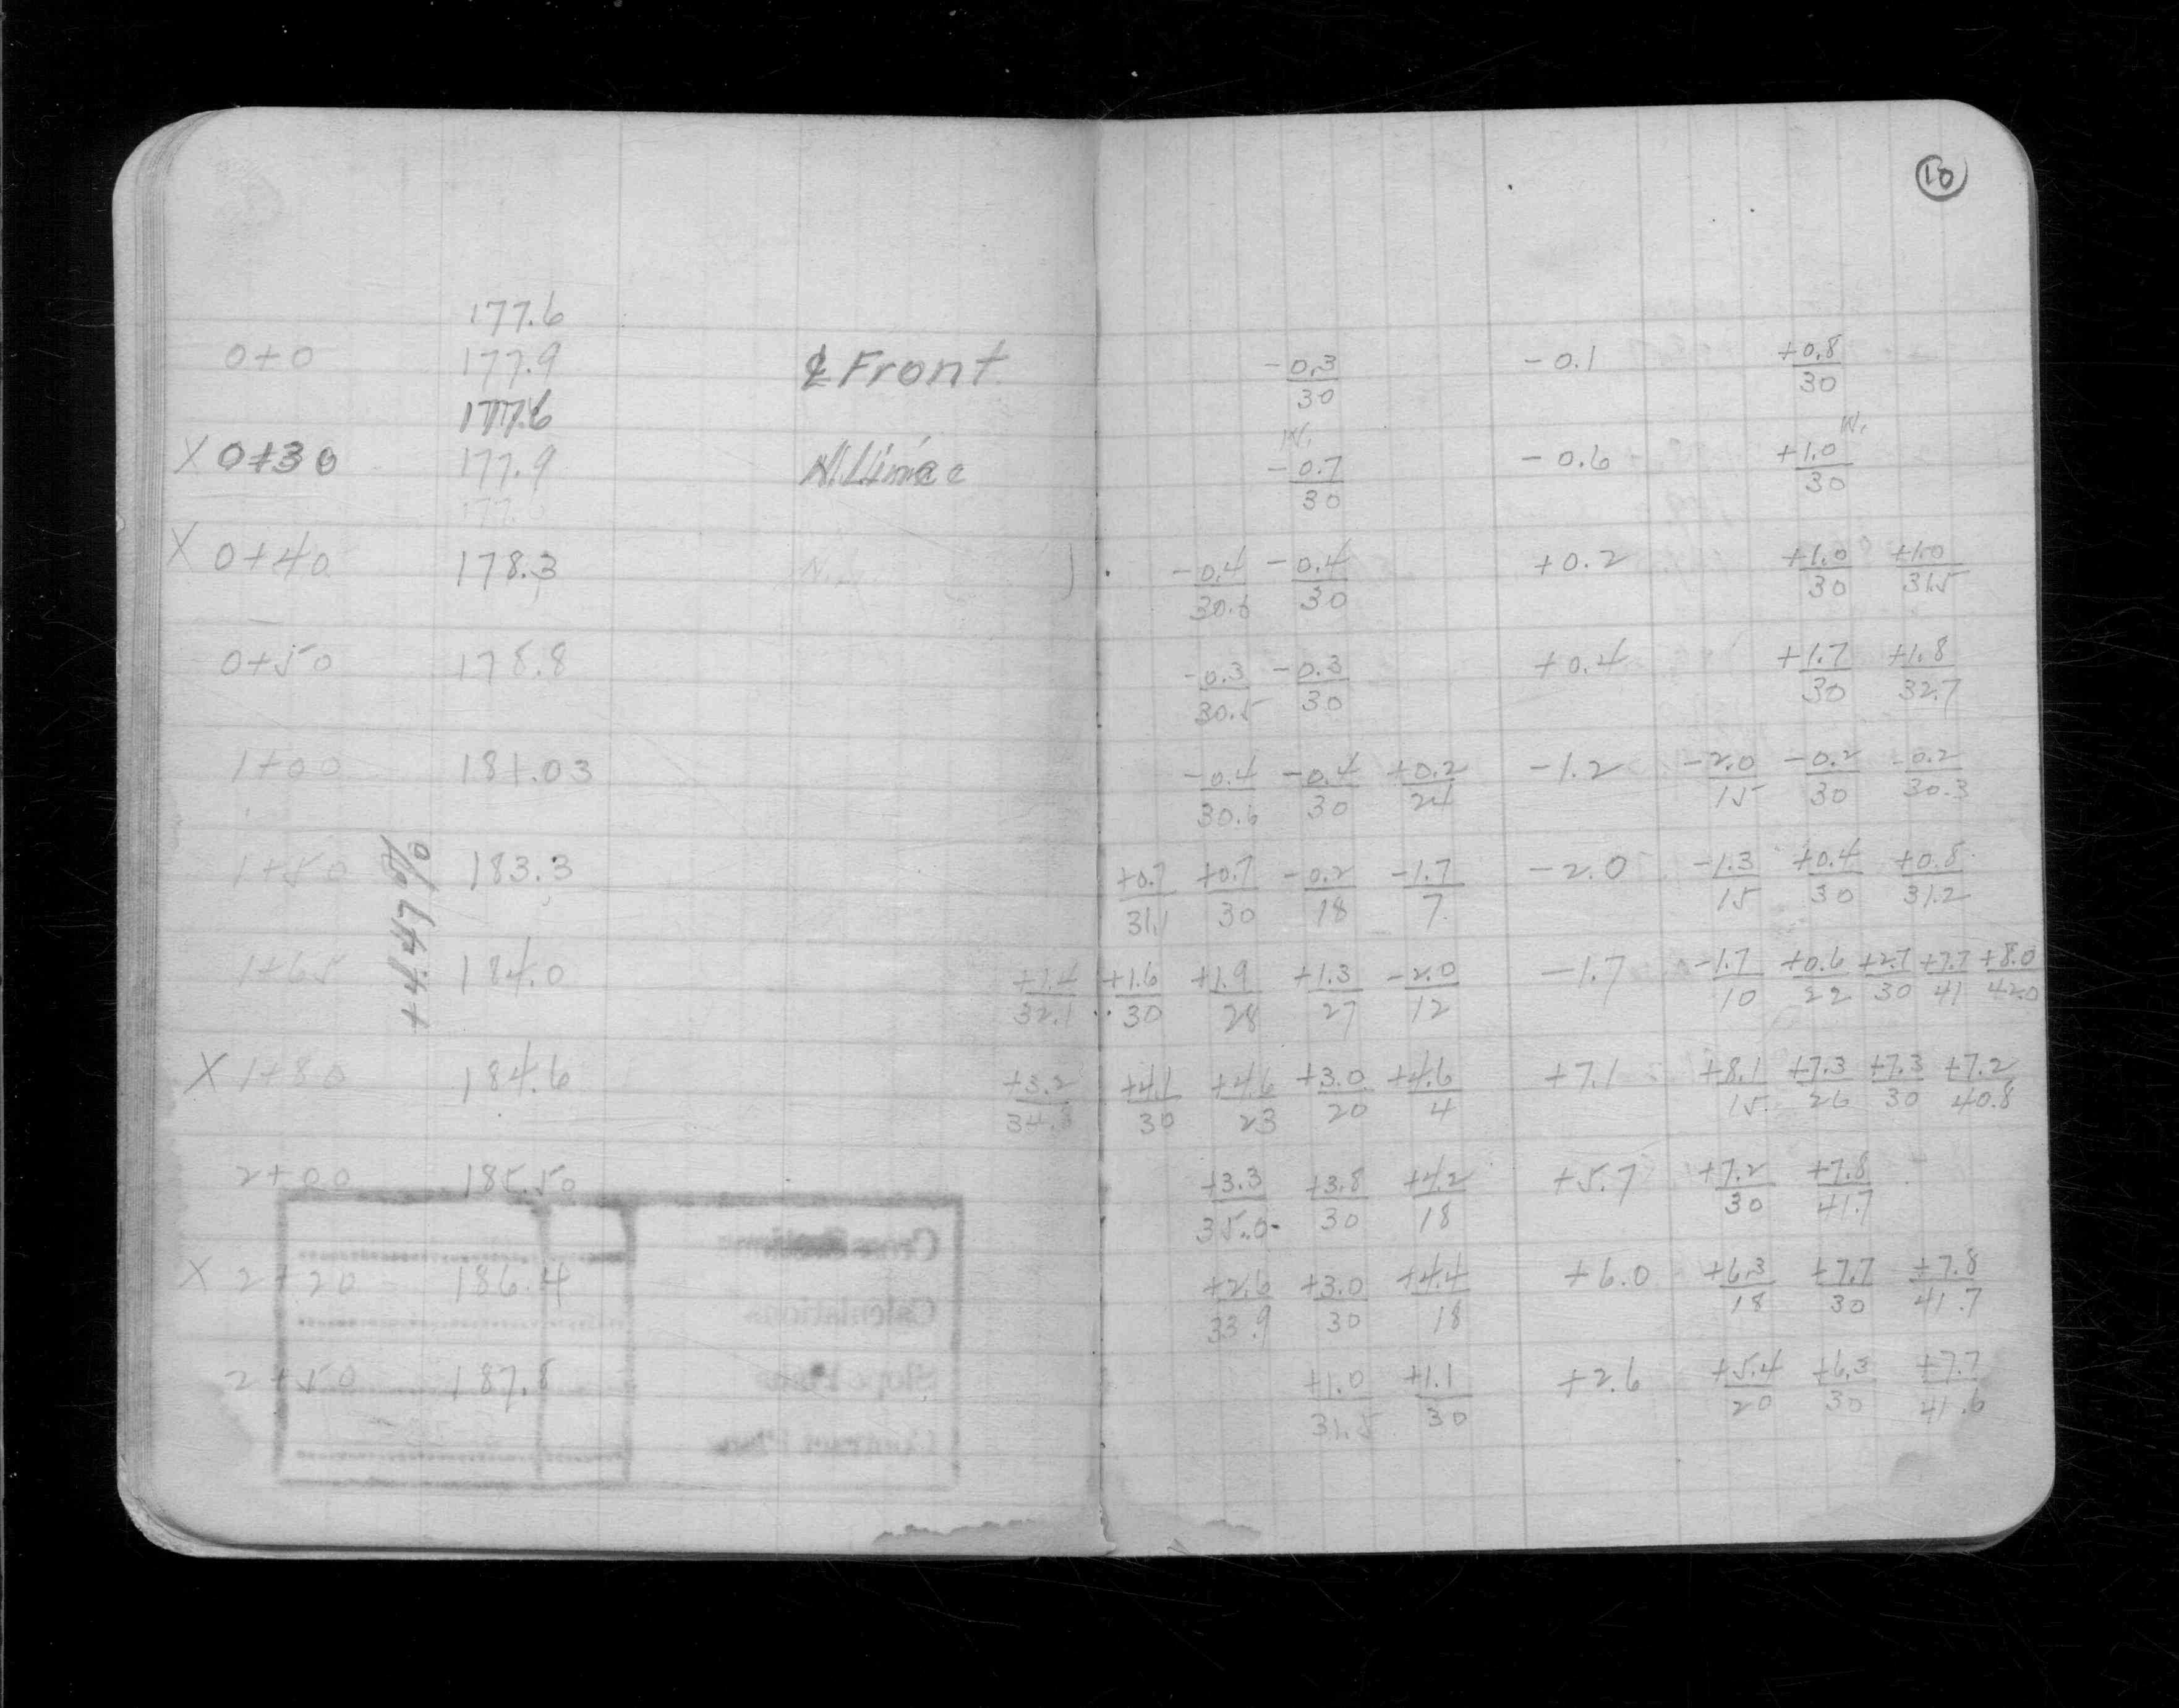 10
177.6
0+0 177.9 ℄ Front -0.3/30 -0.1 +0.8/30
177.6
X 0+30 177.9 N. Line -0.7/30 -0.6 +1.0/30
X 0+40 178.3 -0.4/30.6 -0.4/30 +0.2 +1.0/30 +1.0/31.5
0+50 178.8 -0.3/30.5 -0.3/30 +0.4 +1.7/30 +1.8/32.7
1+00 181.03 -0.4/30.6 -0.4/30 +0.2/24 -1.2 -2.0/15 -0.2/30 -0.2/30.3
1+50 183.3 +0.7/31.1 +0.7/30 -0.2/18 -1.7/7 -2.0 -1.3/15 +0.4/30 +0.8/31.2
+4.47%
1+65 184.0 +1.4/32.1 +1.6/30 +1.9/28 +1.3/27 -2.0/12 -1.7 -1.7/10 +0.6/22 +2.7/30 +7.7/41 +8.0/42.0
X 1+80 184.6 +3.2/34.8 +4.1/30 +4.6/23 +3.0/20 +4.6/4 +7.1 +8.1/15 +7.3/26 +7.3/30 +7.2/40.8
2+00 185.50 +3.3/35.0 +3.8/30 +4.2/18 +5.7 +7.2/30 +7.8/41.7
X 2+20 186.4 +2.6/33.9 +3.0/30 +4.4/18 +6.0 +6.3/18 +7.7/30 +7.8/41.7
2+50 187.8 +1.0/31.5 +1.1/30 +2.6 +5.4/20 +6.3/30 +7.7/41.6